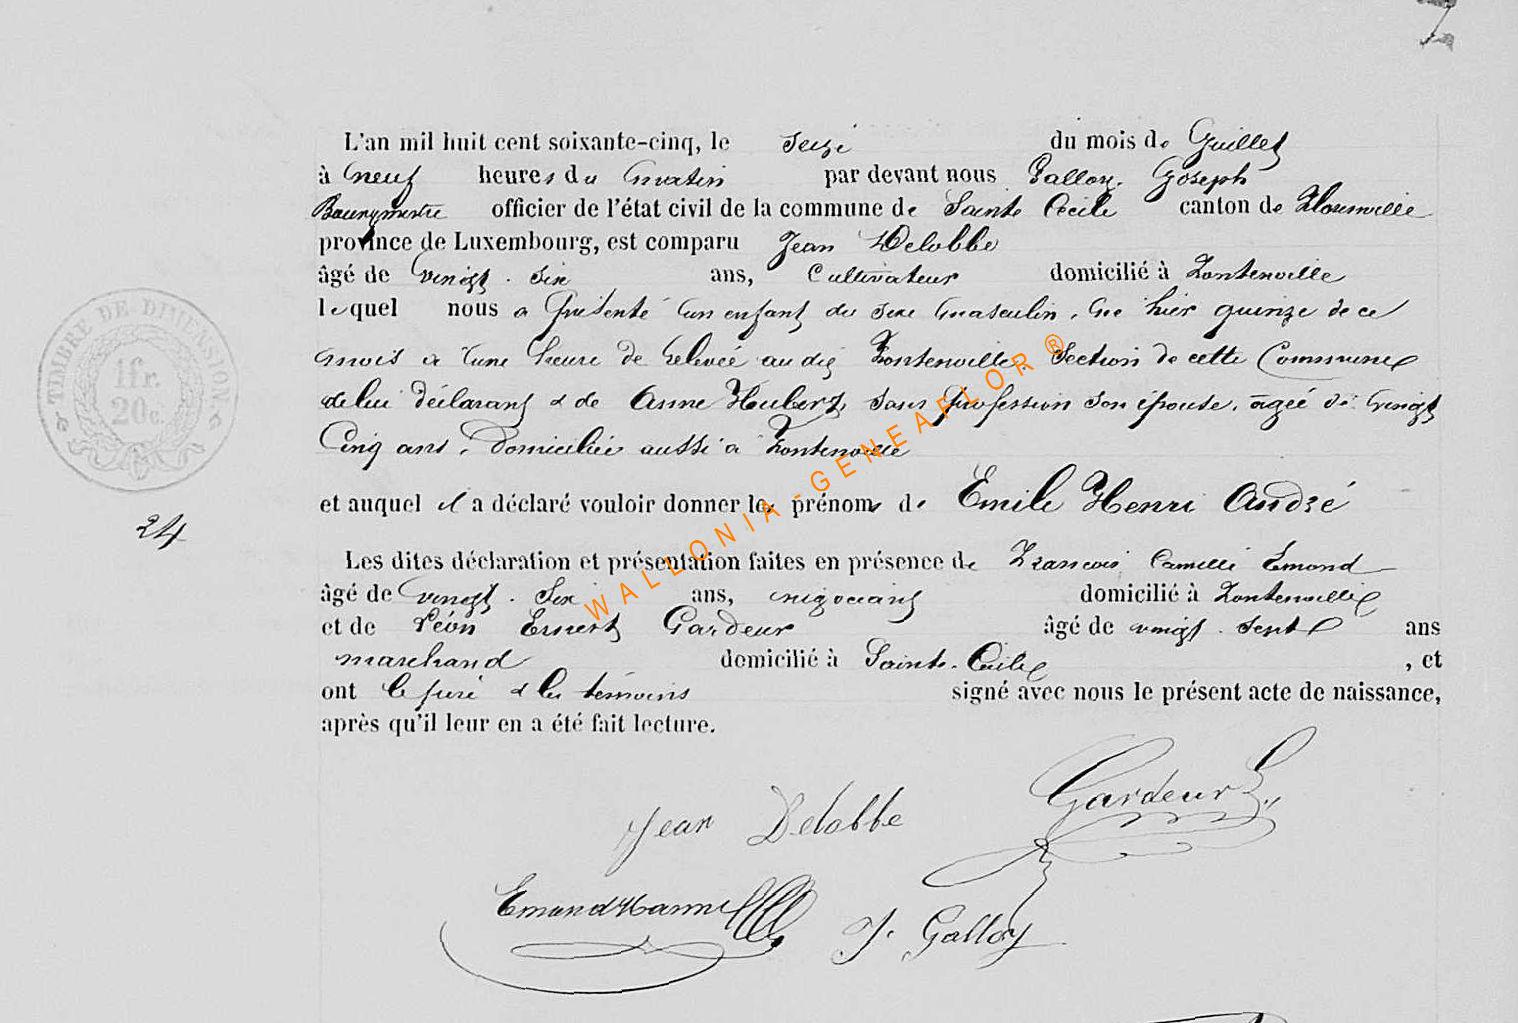 TIMBRE DE DIMENSION
1fr.
20c.
24
L'an mil huit cent soixante-cinq, le seize du mois de Juillet
à neuf heures du matin par devant nous Galloy, Joseph
Bourgmestre officier de l'état civil de la commune de Sainte Cécile canton de Florenville
province de Luxembourg, est comparu Jean Delobbe
âgé de vingt-six ans, Cultivateur domicilié à Fontenoille
lequel nous a présenté un enfant du sexe masculin, né hier quinze de ce
mois à une heure de relevée au dit Fontenoille, Section de cette Commune
de lui déclarant & de Anne Hubert, sans profession son épouse, âgée de vingt
Cinq ans, domiciliée aussi à Fontenoille
et auquel il a déclaré vouloir donner les prénoms de Emile Henri André
Les dites déclaration et présentation faites en présence de François Camille Emond
âgé de vingt-six ans, négociant domicilié à Fontenoille
et de Léon Ernest Gardeur âgé de vingt-sept ans
marchand domicilié à Sainte-Cécile , et
ont le père & les témoins signé avec nous le présent acte de naissance,
après qu'il leur en a été fait lecture.
Jean Delobbe
Gardeur L.
J. Galloy
WALLONIA-GENEAFLOR ®